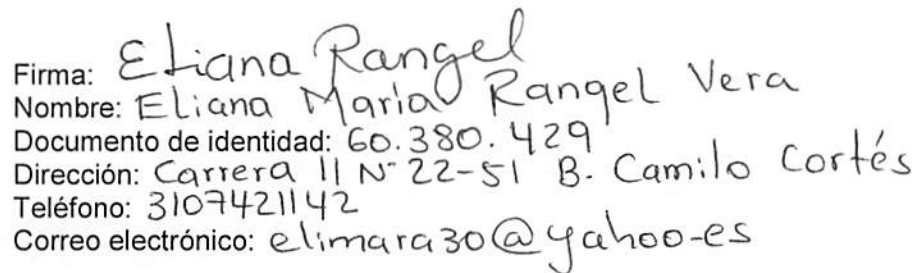 Firma: Eliana Rangel
Nombre: Eliana María Rangel Vera
Documento de identidad: 60.380.429
Dirección: Carrera 11 N° 22-51 B. Camilo Cortés
Teléfono: 3107421142
Correo electrónico: elimara30@yahoo-es